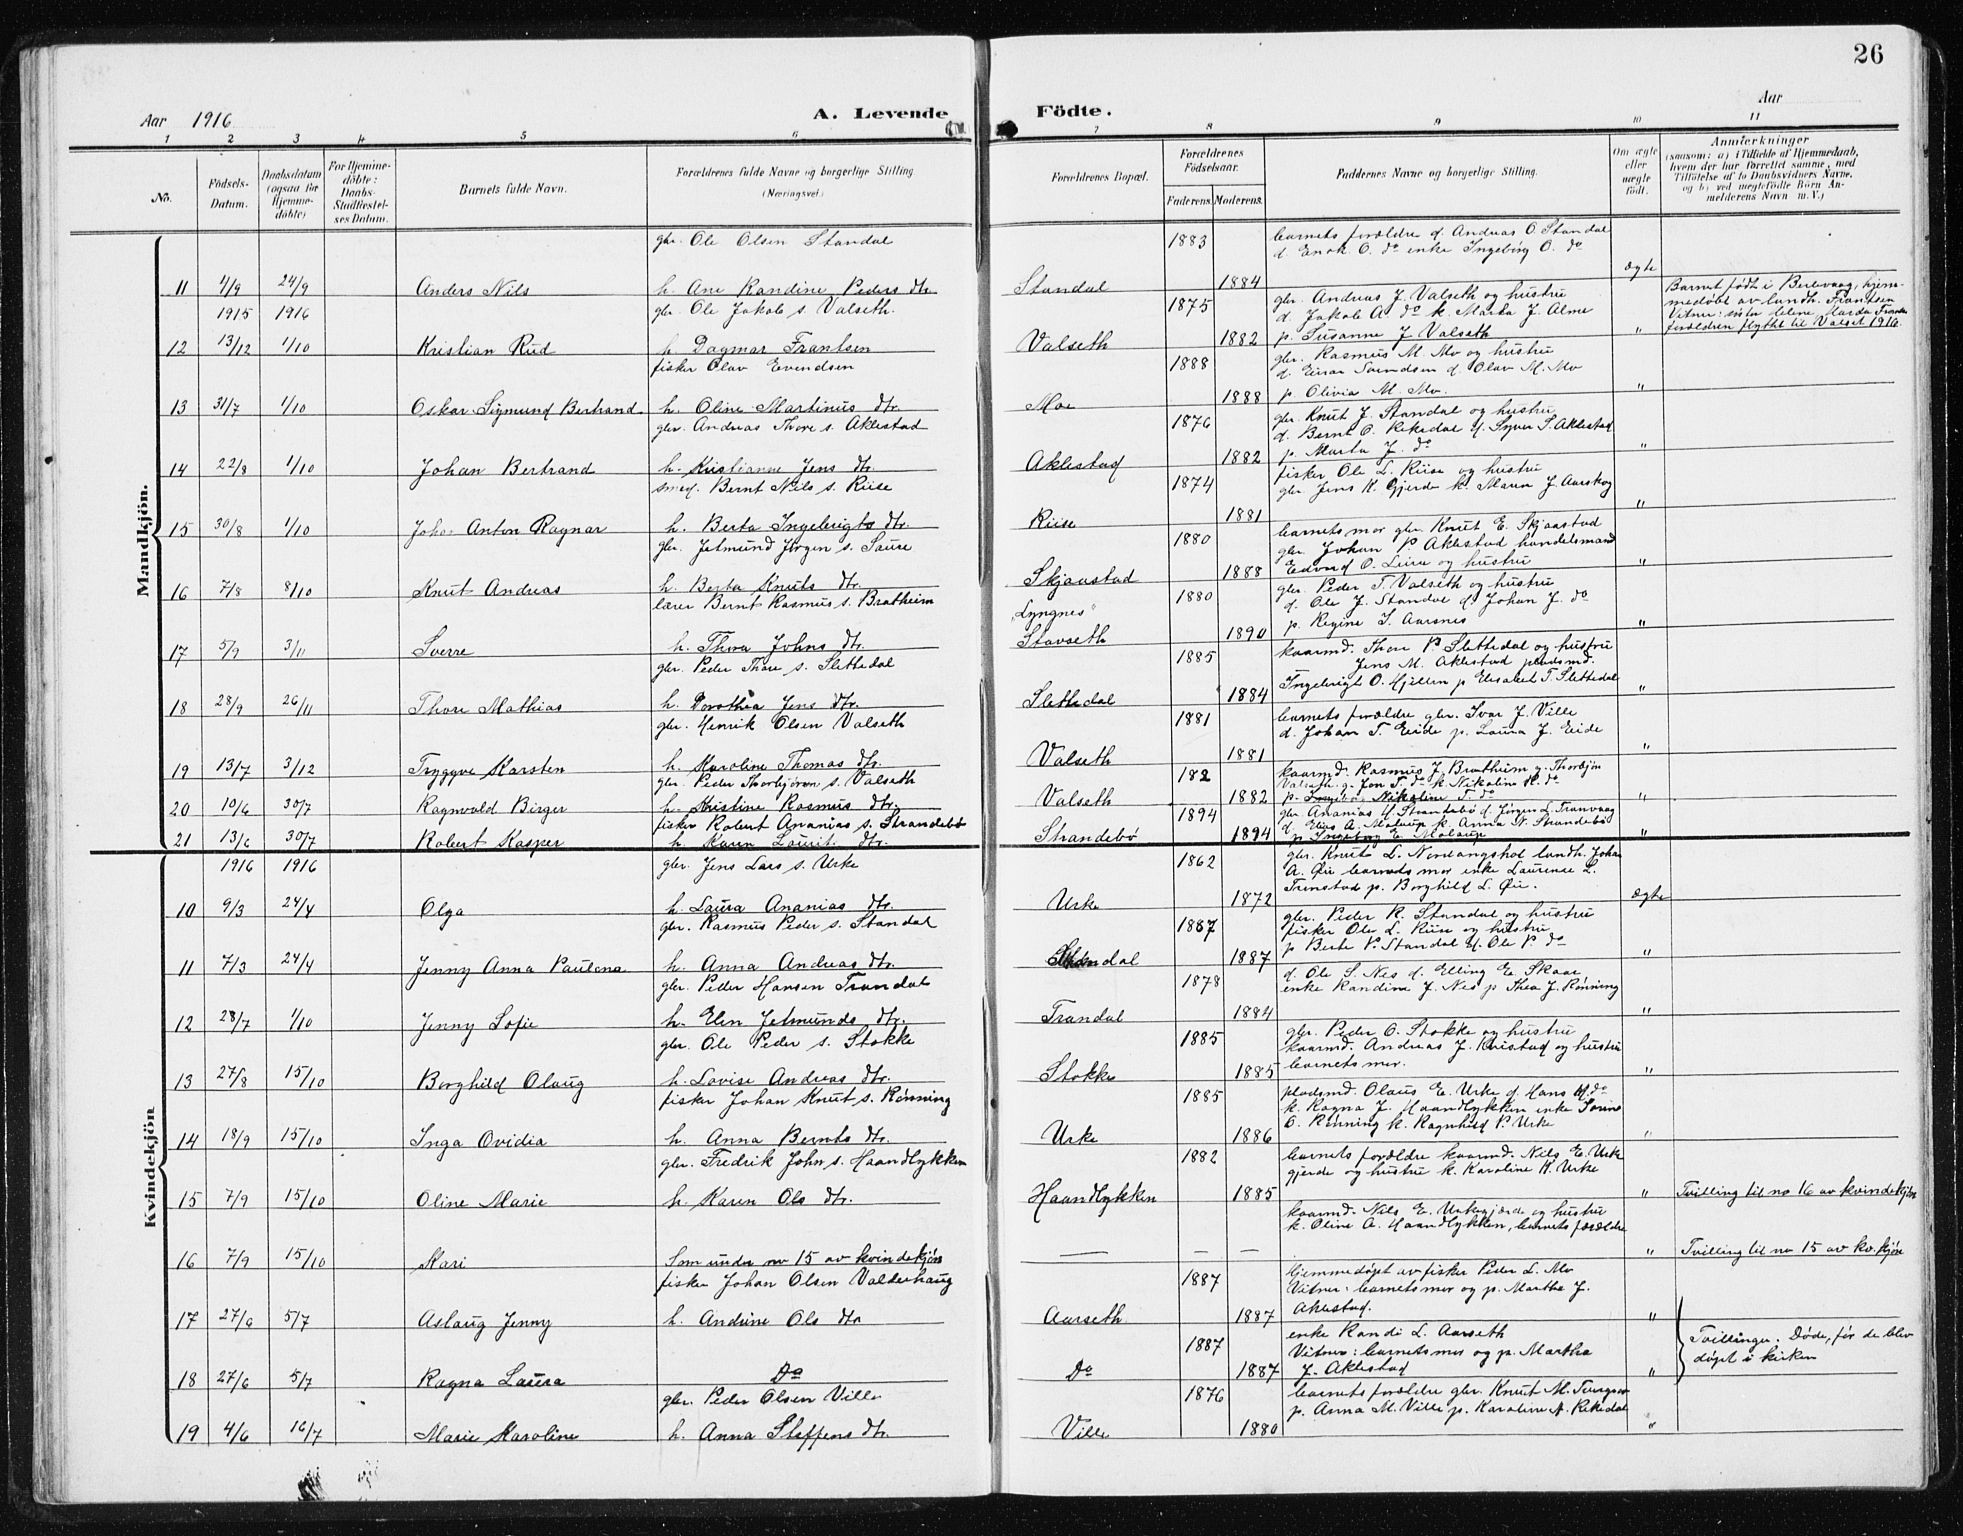 26
Aar 1916
A. Levende
Födte.
Aar
1 2 3 4 5 6 7 8 9 10 11
No.
Födsels-
Datum.
Daabsdatum
(ogsaa for
Hjemme-
döbte)
For Hjemme-
döbte:
Daabs-
Stadfæstel-
ses Datum.
Barnets fulde Navn.
Forældrenes fulde Navne og borgerlige Stilling
(Næringsvei)
Forældrenes Bopæl.
Forældrenes
Födselsaar.
Faderens. Moderens.
Faddernes Navne og borgerlige Stilling.
Om ægte
eller
uægte
födt.
Anmærkninger
(saasom: a) i Tilfælde af Hjemmedaab,
hvem der har forrettet samme, med
Tilföielse af to Daabsvidners Navne,
og b) ved uægtefödte Börn An-
melderens Navn m. V.)
Mandkjön.
gbr. Ole Olsen Standal 1883 barnets forældre d. Andreas O. Standal
d. Enok O. do enke Ingeborg O. do
11 4/9 24/9 Anders Nils h. Ane Randine Peders dtr. Standal 1884 ægte
1915 1916 gbr. Ole Jakob s. Valseth. 1875 gbr. Andreas J. Valseth og hustru
d. Jakob A. do k. Marta J. Alme
Barnet født i Berlevaag, hjem-
medøbt av landh. Frantsen
12 13/12 1/10 Kristian Rud h. Dagmar Frantsen Valseth 1882 p. Susanne J. Valseth "
forældren flyttet til Valset 1916.
fisker Olav Evendsen 1888 gbr. Rasmus M. Mo og hustru
d. Einar Svendsen d. Olav M. Mo
13 31/7 1/10 Oskar Sigmund Bertrand h. Oline Martinus dtr. Moe 1888 p. Olivia M. Mo. "
gbr. Andreas Thore s. Aklestad 1876 gbr. Knut J. Standal og hustru
d. Bernt O. Rekedal d. Syver S. Aklestad
14 22/8 1/10 Johan Bertrand h. Kristianne Jens dtr. Aklestad 1882 p. Marta J. do "
smed. Bernt Nils s. Riise 1874 fisker Ole L. Riise og hustru
gbr. Jens K. Gjerde k. Maren J. Aarskog
15 30/8 1/10 Anton Ragnar h. Berta Ingebrigts dtr. Riise 1881 "
gbr. Jetmund Jørgen s. Saure 1880 barnets mor gbr. Knut E. Skjaastad
gbr. Johan P. Aklestad handelsmand
16 7/8 8/10 Knut Andreas h. Berta Knuts dtr. Skjaastad 1888 og hustru "
lærer Bernt Rasmus s. Bratheim "Lyngnes" 1880 gbr. Peder T. Valseth og hustru
d. Ole J. Standal d. Johan J. do
17 5/9 3/11 Sverre h. Thora Johns dtr. Stavseth 1890 p. Regine S. Aarsnes "
gbr. Peder Thore s. Slettedal 1885 kaarmd. Thore P. Slettedal og husfru
Jens M. Aklestad pladsmd.
18 28/9 26/11 Thore Mathias h. Dorothea Jens dtr. Slettedal 1884 Ingebrigt O. Hjellen p. Elisabet T. Slettedal "
gbr. Henrik Olsen Valseth 1881 barnets forældre gbr. Ivar J. Ville
d. Johan T. Eide p. Laura J. Eide
19 13/7 3/12 Tryggve Karsten h. Karoline Thomas dtr. Valseth 1881 "
gbr. Peder Thorbjörn s. Valseth 182 kaarmd. Rasmus J. Bratheim g. Thorbjørn
Valseth g. Jon T. do k. Nikoline R. do
20 10/6 30/7 Ragnvald Birger h. Kristine Rasmus dtr. Valseth 1882 Nikoline T. do "
fisker Robert Ananias s. Strandebø 1894 gbr. Ananias Strandebø d. Jørgen L. Tranvaag
d. Elias A. Molaup k. Anna N. Strandebø
21 13/6 30/7 Robert Kasper h. Karen Laurit. dtr. Strandebö 1894 p. Ingeborg E. Molaup "
Kvindekjön
1916 1916 gbr. Jens Lars s. Urke 1862 gbr. Knut L. Nordangshol landh. Johan
A. Øie barnets mor enke Laurense L.
10 9/3 24/4 Olga h. Laura Ananias dtr. Urke 1872 Trunstad p. Borghild L. Øie. ægte
gbr. Rasmus Peder s. Standal 1887 gbr. Peder R. Standal og hustru
fisker Ole L. Riise og hustru
11 7/3 24/4 Jenny Anna Paulena h. Anna Andreas dtr. Standal 1887 p. Berte P. Standal d. Ole P. do "
gbr. Peder Hansen Trandal 1878 d. Ole S. Nes d. Elling E. Skaar
enke Randine J. Nes p. Thea J. Rønning
12 28/7 1/10 Jenny Sofie h. Elen Jetmunds dtr. Trandal 1884 "
gbr. Ole Peder s. Stokke 1885 gbr. Peder O. Stokke og hustru
kaarmd. Andreas J. Kvistad og hustru
13 27/8 15/10 Borghild Olaug h. Lovise Andreas dtr. Stokke 1885 barnets mor. "
fisker Johan Knut s. Rønning 1885 pladsmd. Olaus E. Urke d. Hans do
k. Ragna J. Haandlykken enke
14 18/9 15/10 Inga Ovidia h. Anna Bernts dtr. Urke 1886 O. Rønning k. Ragnhild P. Urke "
gbr. Fredrik John s. Haandlykken 1882 barnets forældre kaarmd. Nils E. Urke
gjerde og hustru k. Karoline K. Urke
15 7/9 15/10 Oline Marie h. Karen Ols dtr. Haandlykken 1885 " Tvilling til no 16 av kvindekjön
kaarmd. Nils E. Urkegjerde og hustru
k. Oline A. Haandlykken, barnets forældre
16 7/9 15/10 Kari Som under no 15 av kvindekjön — — — " Tvilling til no 15 av kv.kjön
fisker Johan Olsen Valderhaug 1887 hjemmedøpt av fisker Peder L. Mo
Vitner: barnets mor og p. Martha J.
17 27/6 5/7 Aslaug Jenny h. Andrine Ols dtr Aarseth 1887 Aklestad. "
1887 enke Randi L. Aarseth
Vitner: barnets mor og p. Martha
Tvillinger. Døde, før de blev
døpt i kirken
18 27/6 5/7 Ragna Laura Do Do 1887 J. Aklestad "
gbr. Peder Olsen Ville 1876 barnets forældre gbr. Knut M.
p. Anna M. Ville p. Karoline A. Rekedal
19 4/6 16/7 Marie Karoline h. Anna Steffens dtr. Ville 1880 "